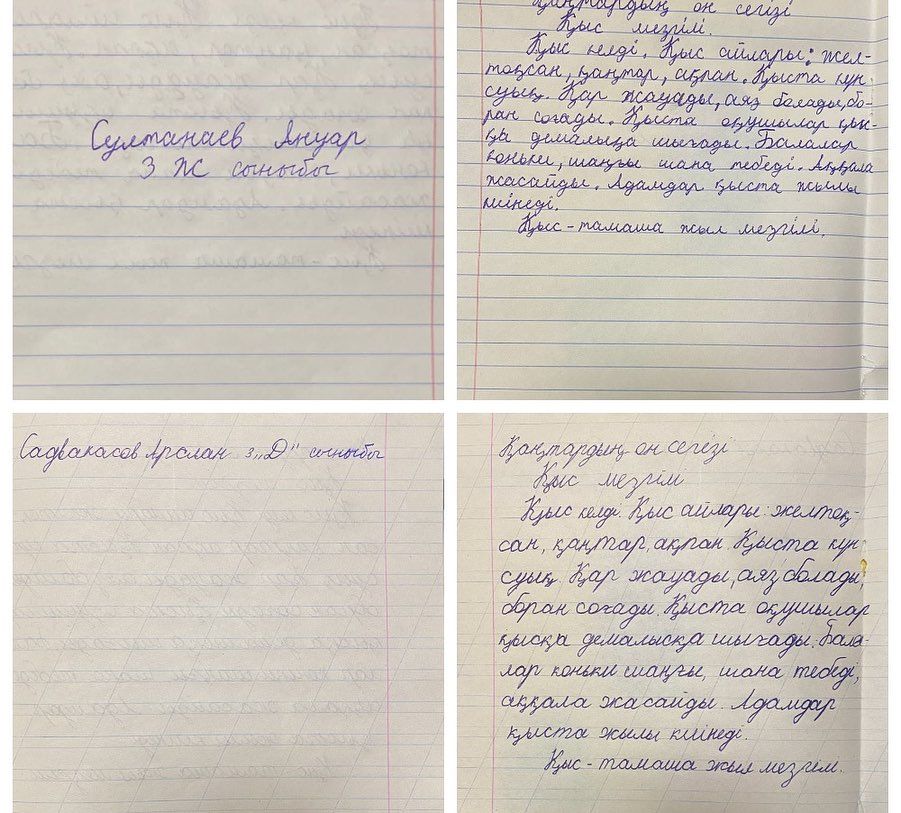 Султанаев Ануар
3 Ж сыныбы
Қаңтардың он сегізі
Қыс мезгілі.
Қыс келді. Қыс айлары: жел-
тоқсан, қаңтар, ақпан. Қыста күн
суық. Қар жауады, аяз болады, бо-
ран соғады. Қыста оқушылар қыс-
қа демалысқа шығады. Балалар
коньки, шаңғы шана тебеді. Аққала
жасайды. Адамдар қыста жылы
киінеді.
Қыс - тамаша жыл мезгілі.
Садвакасов Арслан 3 "Д" сыныбы
Қаңтардың он сегізі
Қыс мезгілі
Қыс келді. Қыс айлары: желтоқ-
сан, қаңтар, ақпан. Қыста күн
суық. Қар жауады, аяз болады,
боран соғады. Қыста оқушылар
қысқа демалысқа шығады. Бала-
лар коньки шаңғы, шана тебеді,
аққала жасайды. Адамдар
қыста жылы киінеді.
Қыс - тамаша жыл мезгілі.